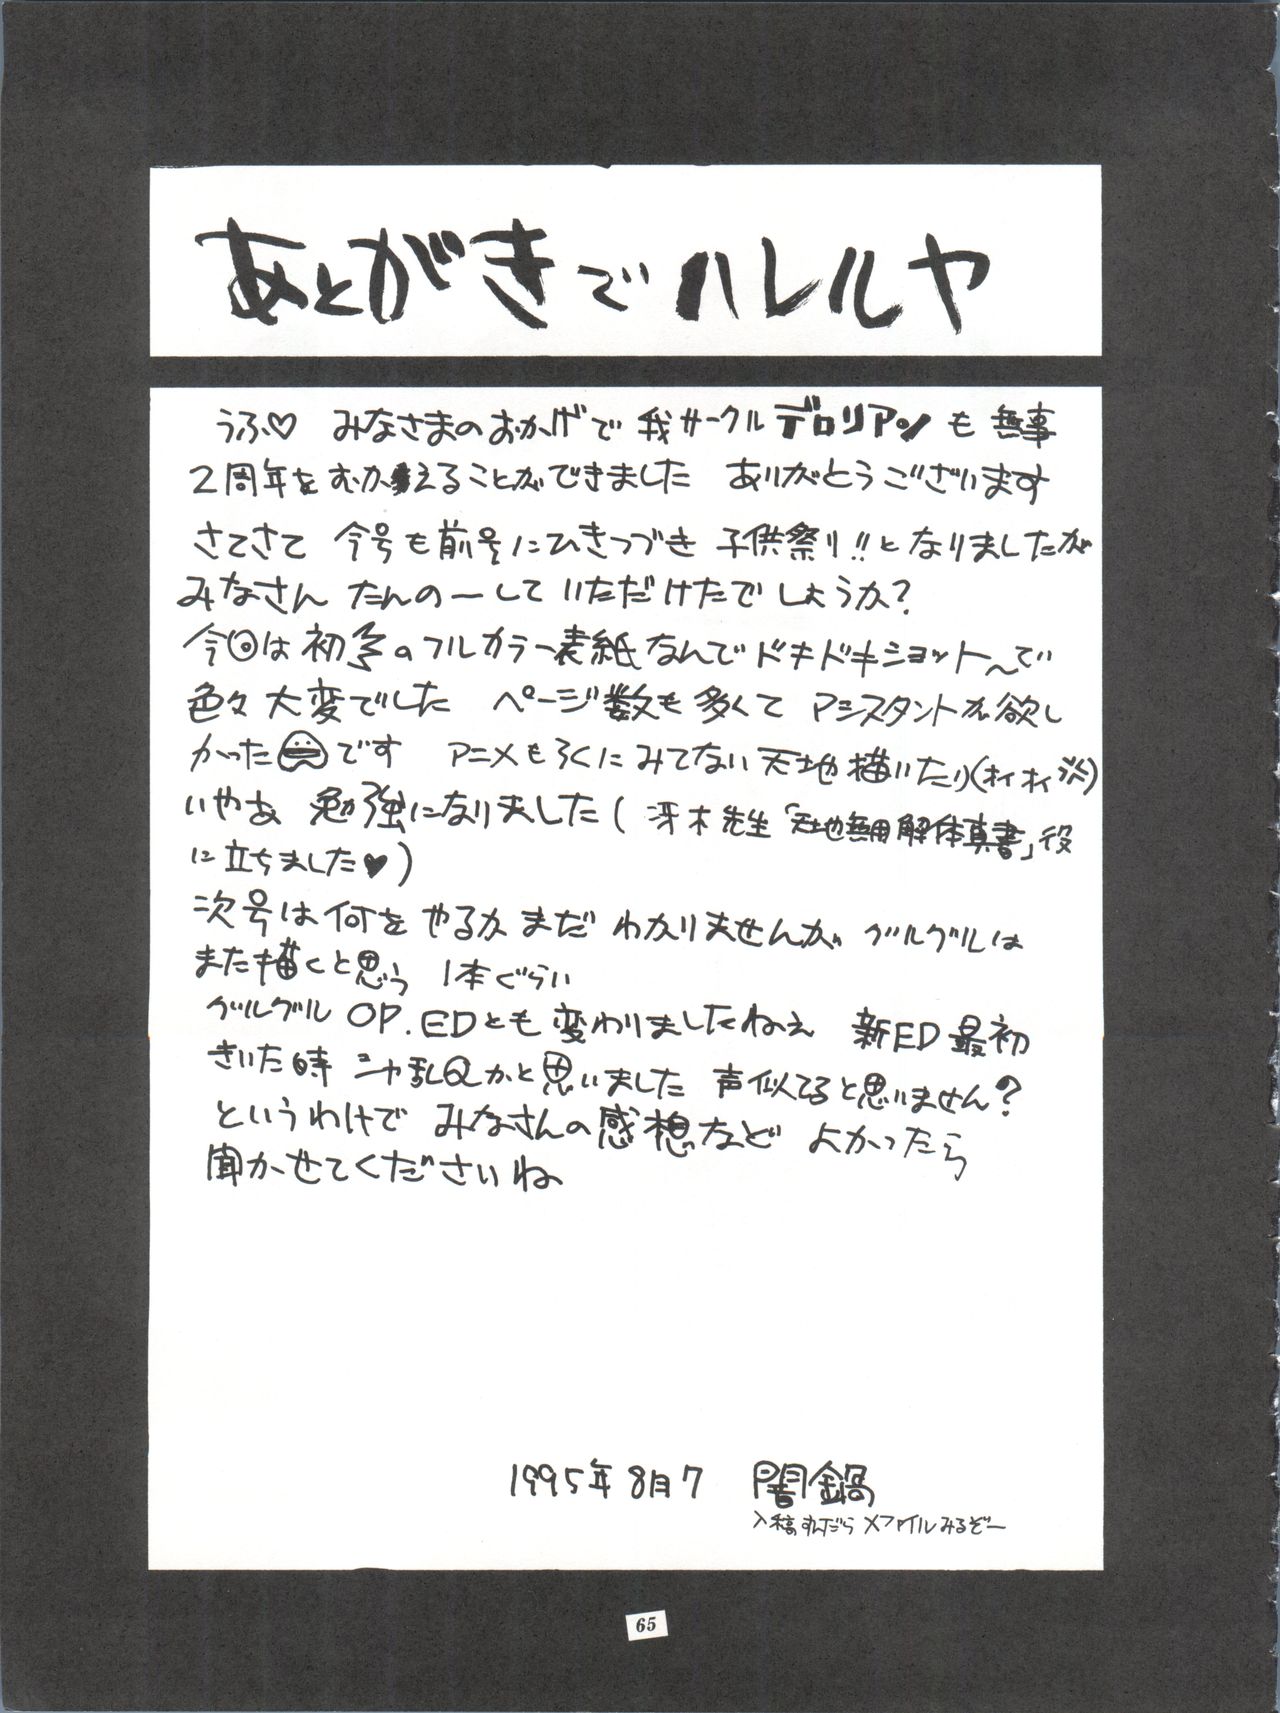 あとがきでハレルヤ
うふ♡ みなさまのおかげで 我サークル デロリアンも 無事
2周年をむかえることができました ありがとうございます
さてさて 今号も前号にひきつづき 子供祭り!!となりましたが
みなさん たんのーして いただけたでしょうか?
今回は初のフルカラー表紙なんでドキドキショット〜で
色々大変でした ページ数も多くて アシスタントが欲し
かった です アニメもろくにみてない天地描いたり(オイオイ)
いやあ 勉強になりました( 冴木先生「天地無用解体真書」役
に立ちました♥)
次号は何をやるかまだ わかりませんが グルグルは
また描くと思う 1本ぐらい
グルグル OP.EDとも変わりましたねぇ 新ED最初
きいた時 シャ乱Qかと思いました 声似てると思いません?
というわけで みなさんの感想など よかったら
聞かせてくださいね
1995年8月7 闇鍋
入稿すんだら Xファイルみるぞー
65